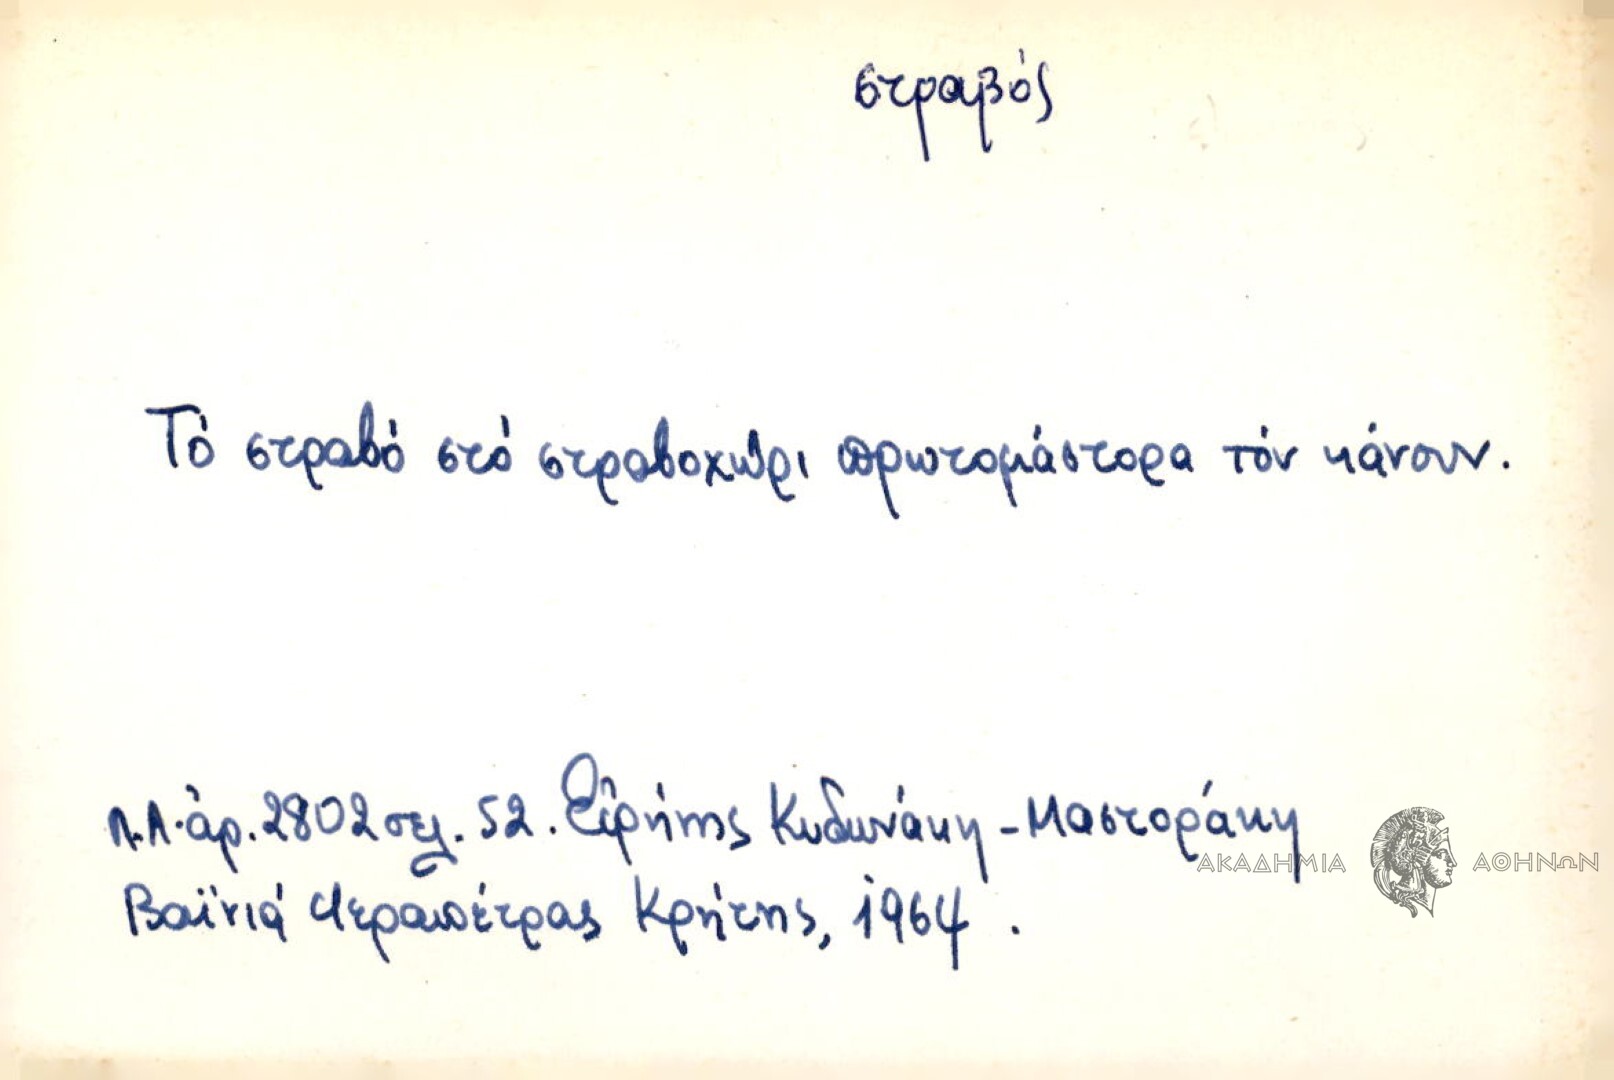 στραβός
Τό στραβό στό στραβοχώρι πρωτομάστορα τόν κάνουν.
Λ.Α. ἀρ. 2802 σελ. 52. Εἰρήνης Κυδωνάκη - Μαστοράκη
ΑΚΑΔΗΜΙΑ ΑΘΗΝΩΝ
Βαϊνιά Ἱεραπέτρας Κρήτης, 1964.